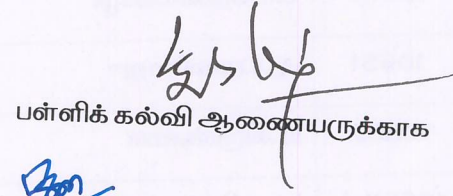 பள்ளிக் கல்வி ஆணையருக்காக